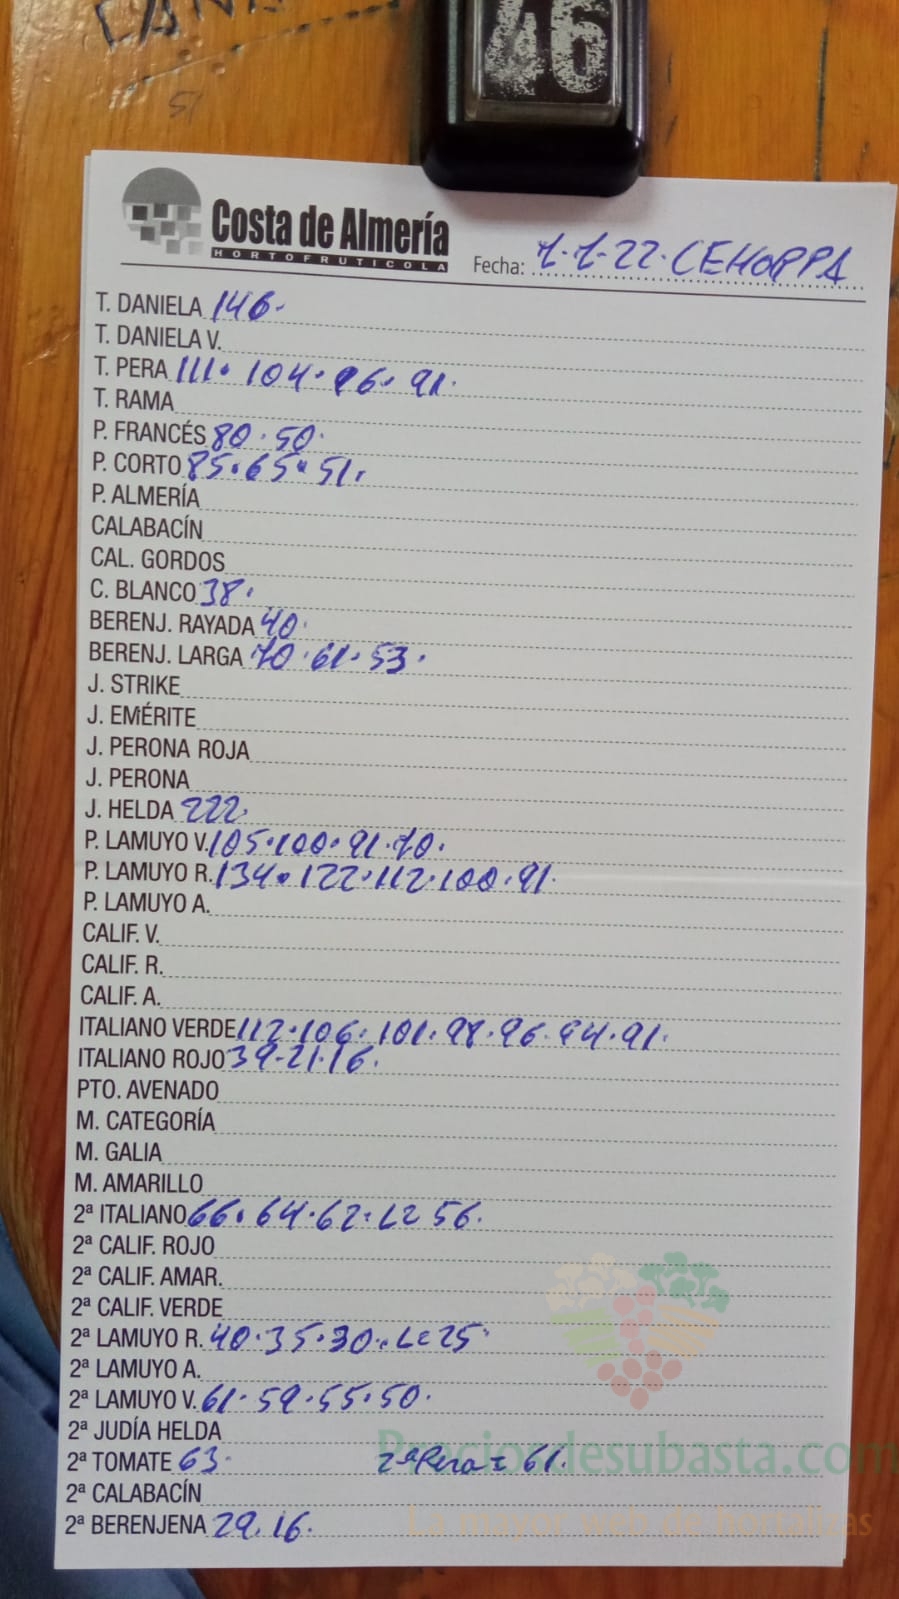 46
Costa de Almería
HORTOFRUTICOLA
Fecha: 7-7-22. CEHORPA
T. DANIELA 146.
T. DANIELA V.
T. PERA 111. 104. 96. 91.
T. RAMA
P. FRANCÉS 80. 50.
P. CORTO 85. 65. 51.
P. ALMERÍA
CALABACÍN
CAL. GORDOS
C. BLANCO 38.
BERENJ. RAYADA 40.
BERENJ. LARGA 70. 61. 53.
J. STRIKE
J. EMÉRITE
J. PERONA ROJA
J. PERONA
J. HELDA 222.
P. LAMUYO V. 105. 100. 91. 70.
P. LAMUYO R. 134. 122. 112. 100. 91.
P. LAMUYO A.
CALIF. V.
CALIF. R.
CALIF. A.
ITALIANO VERDE 112. 106. 101. 98. 96. 94. 91.
ITALIANO ROJO 39-21. 16.
PTO. AVENADO
M. CATEGORÍA
M. GALIA
M. AMARILLO
2ª ITALIANO 66. 64. 62. L= 56.
2ª CALIF. ROJO
2ª CALIF. AMAR.
2ª CALIF. VERDE
2ª LAMUYO R. 40. 35. 30. L= 25.
2ª LAMUYO A.
2ª LAMUYO V. 61. 59. 55. 50.
2ª JUDÍA HELDA
Preciosdesubasta.com
2ª TOMATE 63. 2ª Pera = 61.
2ª CALABACÍN
La mayor web de hortalizas
2ª BERENJENA 29. 16.